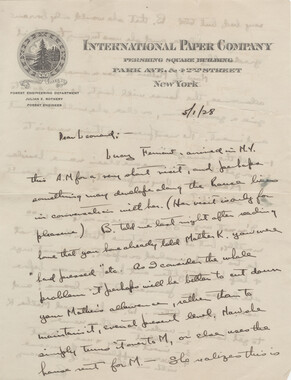 INTERNATIONAL PAPER COMPANY
PERSHING SQUARE BUILDING
PARK AVE. & 42ND STREET
New York
FOREST ENGINEERING DEPARTMENT
JULIAN E. ROTHERY
FOREST ENGINEER
5/1/28
Dear Leonard;-
Lucy Fement, arrived in N.Y.
this A.M for a very short visit, and perhaps
something may develope along the Kansas lines
in conversation with her. (Her visit is only for
pleasure) B. told me last night after
that you had already told Mother K. you were
"hard pressed" etc. As I consider the whole
problem it perhaps will be better to cut down
your Mother's allowance, rather than to
maintain it, present level,
simply turns it over to M, or else uses the
house rent for M. — She realizes this is